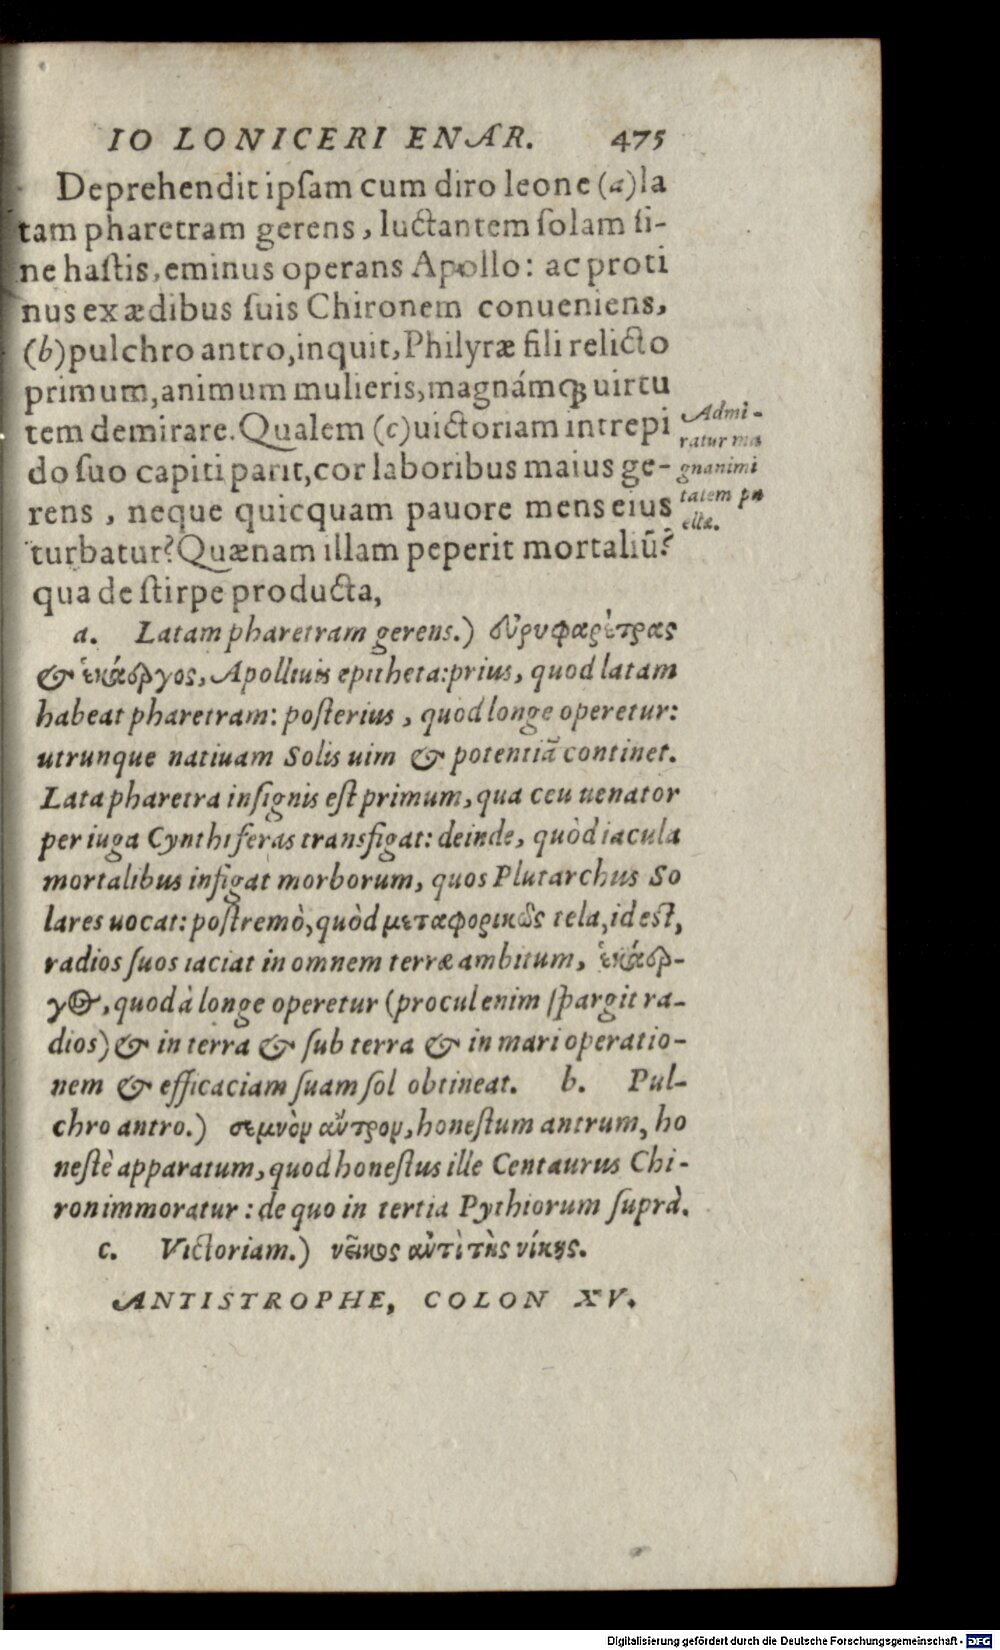 IO LONICERI ENAR. 475
Deprehendit ipſam cum diro leone (a) la
tam pharetram gerens, luctantem ſolam ſi-
ne haſtis, eminus operans Apollo: ac proti
nus ex ædibus ſuis Chironem conueniens,
(b) pulchro antro, inquit, Philyræ fili relicto
primum, animum mulieris, magnámꝗꝫ uirtu
tem demirare. Qualem (c) uictoriam intrepi
do ſuo capiti parit, cor laboribus maius ge-
rens, neque quicquam pauore mens eius
turbatur? Quænam illam peperit mortaliũ?
qua de ſtirpe producta,
Admi-
ratur ma
gnanimi
tatem pu
ellæ.
a. Latam pharetram gerens.) εὐρυφαρέτρας
& ἑκάεργος, Apollinis epitheta: prius, quod latam
habeat pharetram: poſterius, quod longe operetur:
utrunque natiuam Solis uim & potentiã continet.
Lata pharetra inſignis eſt primum, qua ceu uenator
per iuga Cynthi feras transfigat: deinde, quòd iacula
mortalibus infigat morborum, quos Plutarchus So
lares uocat: poſtremò, quòd μεταφορικῶς tela, id eſt,
radios ſuos iaciat in omnem terræ ambitum, ἑκάερ-
γος, quod à longe operetur (procul enim ſpargit ra-
dios) & in terra & ſub terra & in mari operatio-
nem & efficaciam ſuam ſol obtineat. b. Pul-
chro antro.) σεμνὸν ἄντρον, honeſtum antrum, ho
neſtè apparatum, quod honeſtus ille Centaurus Chi-
ron immoratur: de quo in tertia Pythiorum ſuprà.
c. Victoriam.) νεῖκος ἀντὶ τῆς νίκης.
ANTISTROPHE, COLON XV.
Digitalisierung gefördert durch die Deutsche Forschungsgemeinschaft - DFG